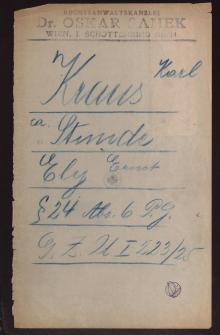 RECHTSANWALTSKANZLEI
Dr. OSKAR SAMEK
WIEN, I. SCHOTTENRING
Karl
Kraus
ca. Stunde
Ely Ernst
§ 24 Abs. 6 P.G.
G. Z. U I 223/25